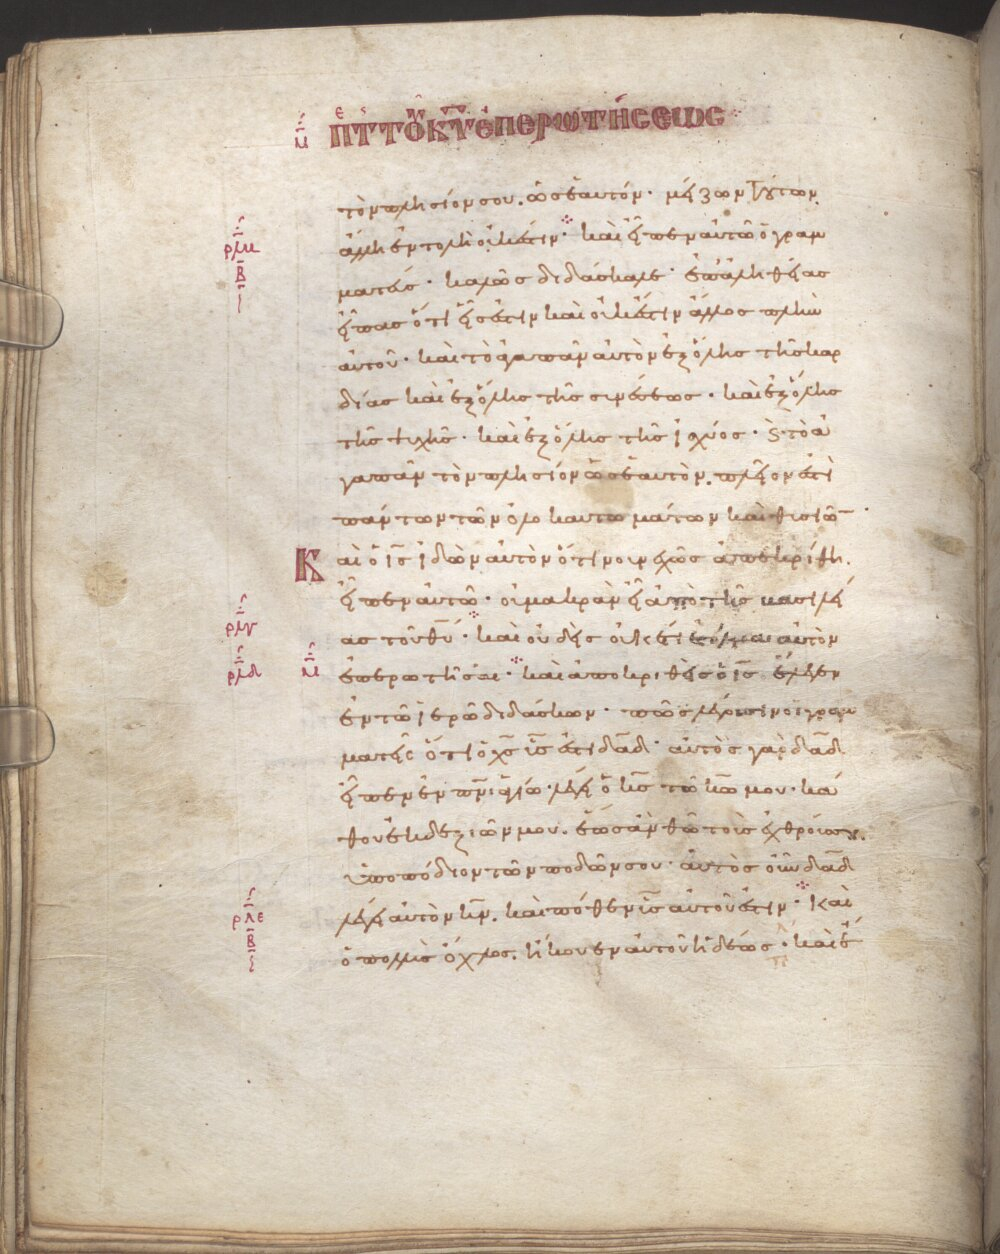 μ Περὶ τῆς τοῦ κυ ἐπερωτήσεως
τὸν πλησίον σου. ὡς ἑαυτόν· μείζων τούτων
ἄλλη ἐντολὴ οὐκ ἔστιν· καὶ εἶπεν αὐτῶ ὁ γραμ
ματεύς· καλῶς διδάσκαλε· ἐπ ἀληθείας
εἶπας ὅτι εἷς ἐστιν καὶ οὐκ ἔστιν ἄλλος πλὴν
αὐτοῦ· καὶ τὸ ἀγαπᾶν αὐτὸν ἐξ ὅλης τῆς καρ
δίας καὶ ἐξ ὅλης τῆς συνέσεως· καὶ ἐξ ὅλης
τῆς ψυχῆς· καὶ ἐξ ὅλης τῆς ἰσχύος· ϗ τὸ ἀ
γαπᾶν τὸν πλησίον ὡς ἑαυτὸν. πλεῖον ἐστὶ
πάντων τῶν ὁλοκαυτωμάτων καὶ θυσιῶν
Καὶ ὁ ις ἰδὼν αὐτὸν ὅτι νουνεχῶς ἀπεκρίθη.
εἶπεν αὐτῶ· οὐ μακρὰν εἶ ἀπὸ τῆς βασιλεί
ας τοῦ θυ· καὶ οὐδεὶς οὐκέτι ἐτόλμα αὐτὸν
ἐπερωτῆσαι· καὶ ἀποκριθεὶς ὁ ις ἔλεγεν
ἐν τῶ ἱερῶ διδάσκων· πῶς λέγουσιν οἱ γραμ
ματεῖς ὅτι ὁ χς υς ἐστι δαδ· αὐτὸς γὰρ δαδ
εἶπεν ἐν πνι ἁγίω· λέγει ὁ κς τῶ κω μου· κά
θου ἐκ δεξιῶν μου. ἕως ἂν θῶ τοὺς ἐχθρούς σου.
ὑποπόδιον τῶν ποδῶν σου· αὐτὸς οὖν δαδ
λέγει αὐτὸν κν. καὶ πόθεν υς αὐτοῦ ἐστιν· Καὶ
ὁ πολλὺς ὄχλος. ἤκουεν αὐτοῦ ἡδέως· καὶ ἔ
ρλβ
Β
ρλγ
ρλδ
μ
ρλε
Β